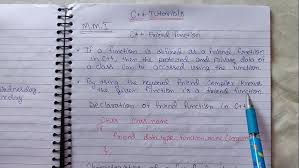 C++ Tutorials
M.M.I
C++ Friend Function
If a function is defined as a friend function
in C++, then the protected and private data of
a class can be accessed using the function.
By using the keyword friend compiler knows
the given function is a friend function.
Declaration of friend function in C++
class class_name
friend data_type function_name (
Wednesday